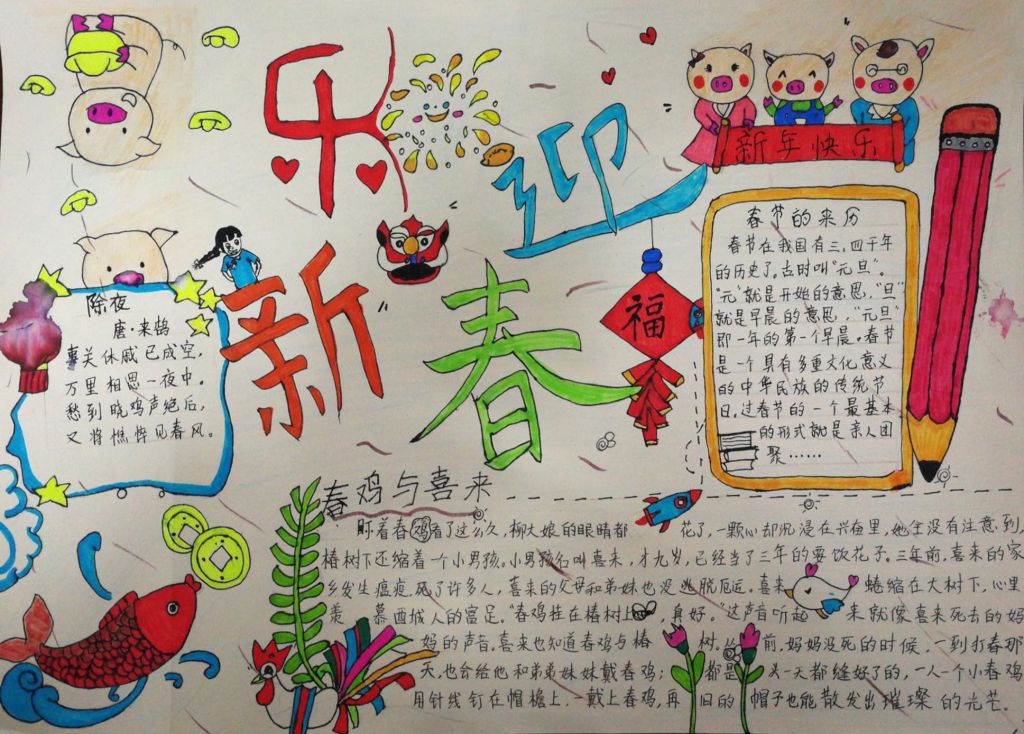 乐
迎
新
春
新年快乐
福
春节的来历
春节在我国有三、四千年
的历史了。古时叫“元旦”。
“元”就是开始的意思，“旦”
就是早晨的意思，“元旦”
即一年的第一个早晨。春节
是一个具有多重文化意义
的中华民族的传统节
日。过春节的一个最基本
的形式就是亲人团
聚……
除夜
唐·来鹄
关休戚已成空，
万里相思一夜中。
愁到晓鸡声绝后，
又将憔悴见春风。
春鸡与喜来
盯着春鸡看了这么久，柳大娘的眼睛都 花了，一颗心却沉浸在兴奋里，她全没有注意到
椿树下还缩着一个小男孩。小男孩名叫喜来，才九岁，已经当了三年的要饮花子。三年前，喜来的家
乡发生瘟疫，死了许多人，喜来的父母和弟妹也没逃脱厄运。喜来 蜷缩在大树下，心里
羡 慕西城人的富足。“春鸡挂在椿树上 身好。”这声音听起 来就像喜来死去的妈
妈的声音，喜来也知道春鸡与椿 树。 前，妈妈没死的时候，一到打春那
天，也会给他和弟弟妹妹戴春鸡； 都是 头一天都缝好了的，一人一个小春鸡
用针线钉在帽檐上，一戴上春鸡，再 旧的 帽子也能散发出璀璨的光芒。